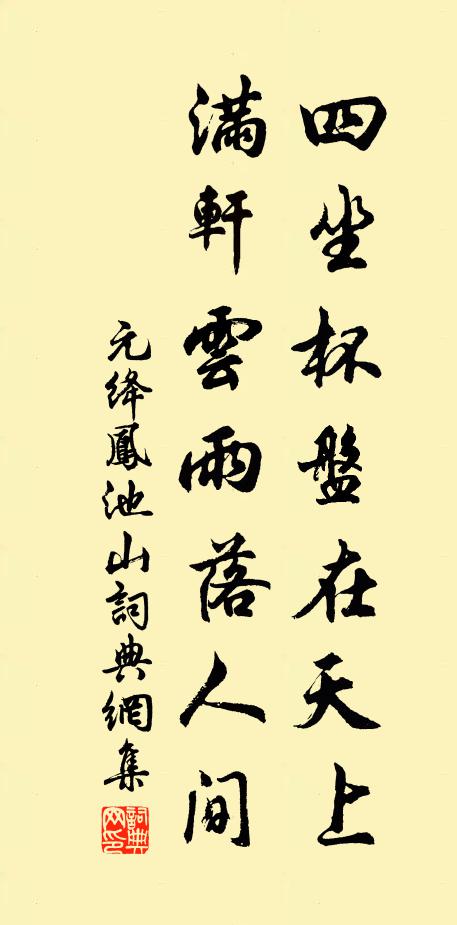 四坐杯盤在天上
滿軒雲雨落人间
元絳鳳池山詞典網集
詞典网印